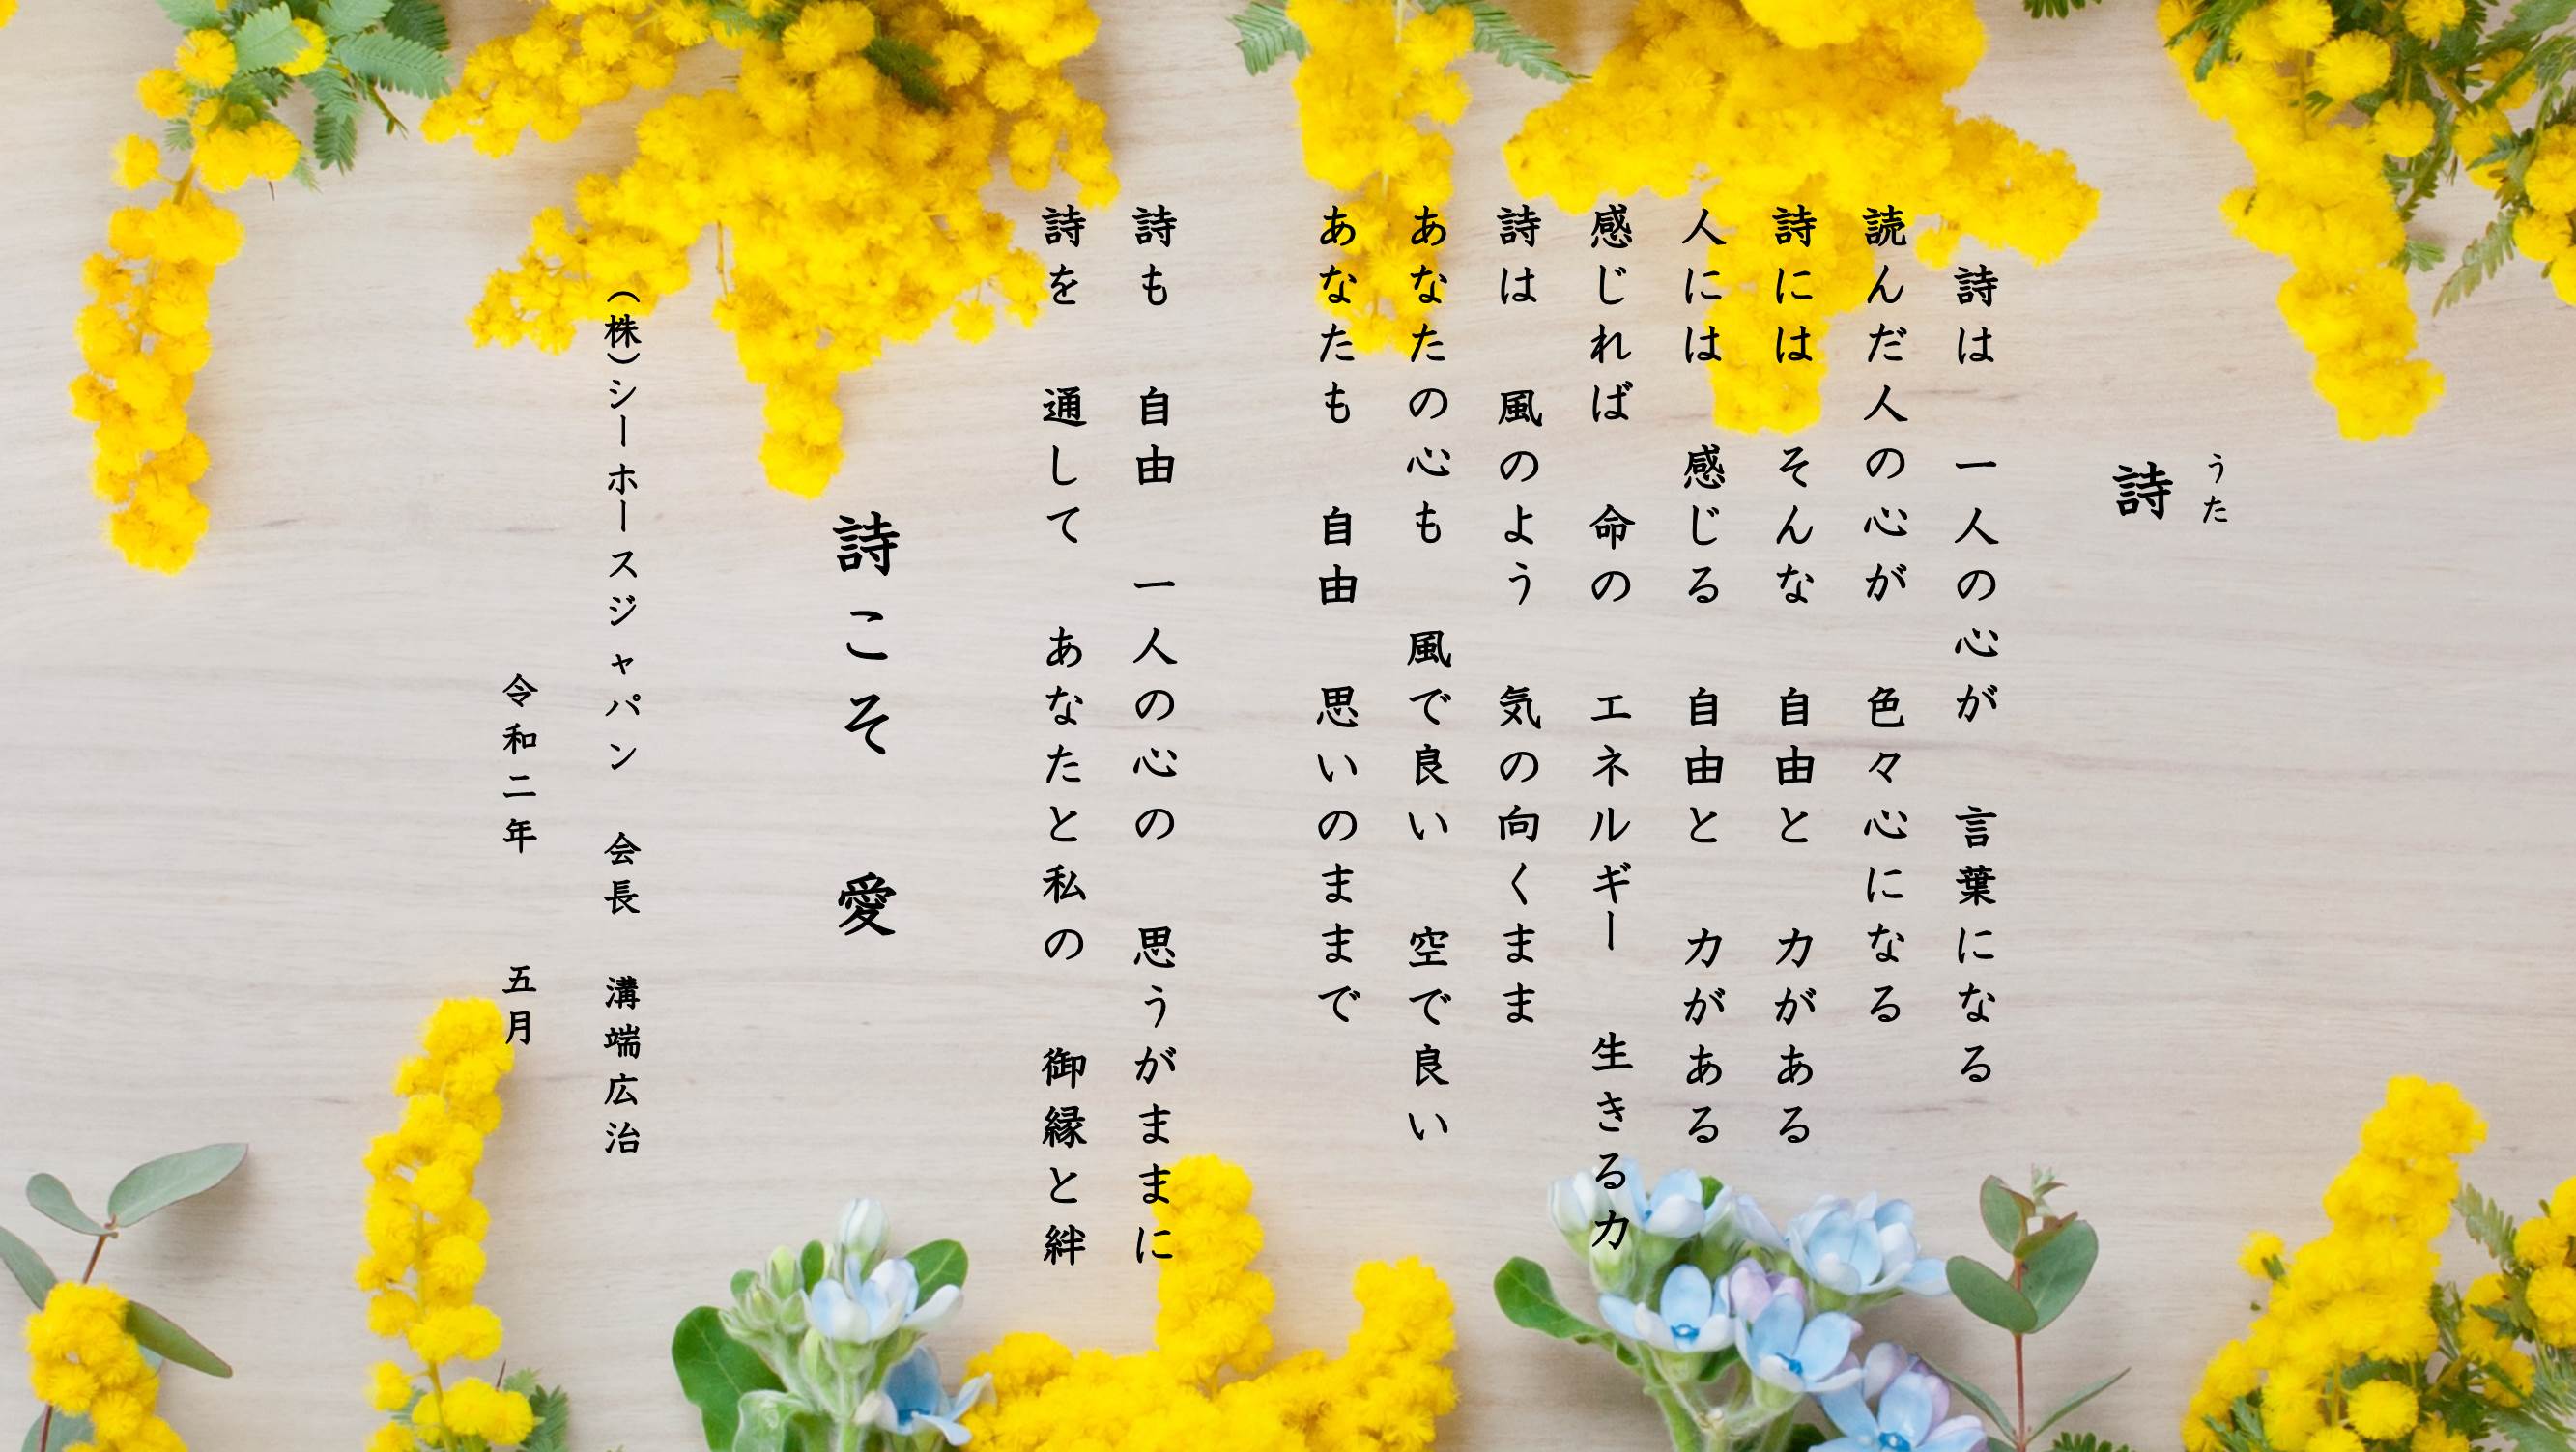 うた
詩
詩は　一人の心が　言葉になる
読んだ人の心が　色々心になる
詩には　そんな　自由と　力がある
人には　感じる　自由と　力がある
感じれば　命の　エネルギー　生きる力
詩は　風のよう　気の向くまま
あなたの心も　風で良い　空で良い
あなたも　自由　思いのままで
詩も　自由　一人の心の　思うがままに
詩を　通して　あなたと私の　御縁と絆
詩こそ　愛
（株）シーホースジャパン　会長　溝端広治
令和二年　五月